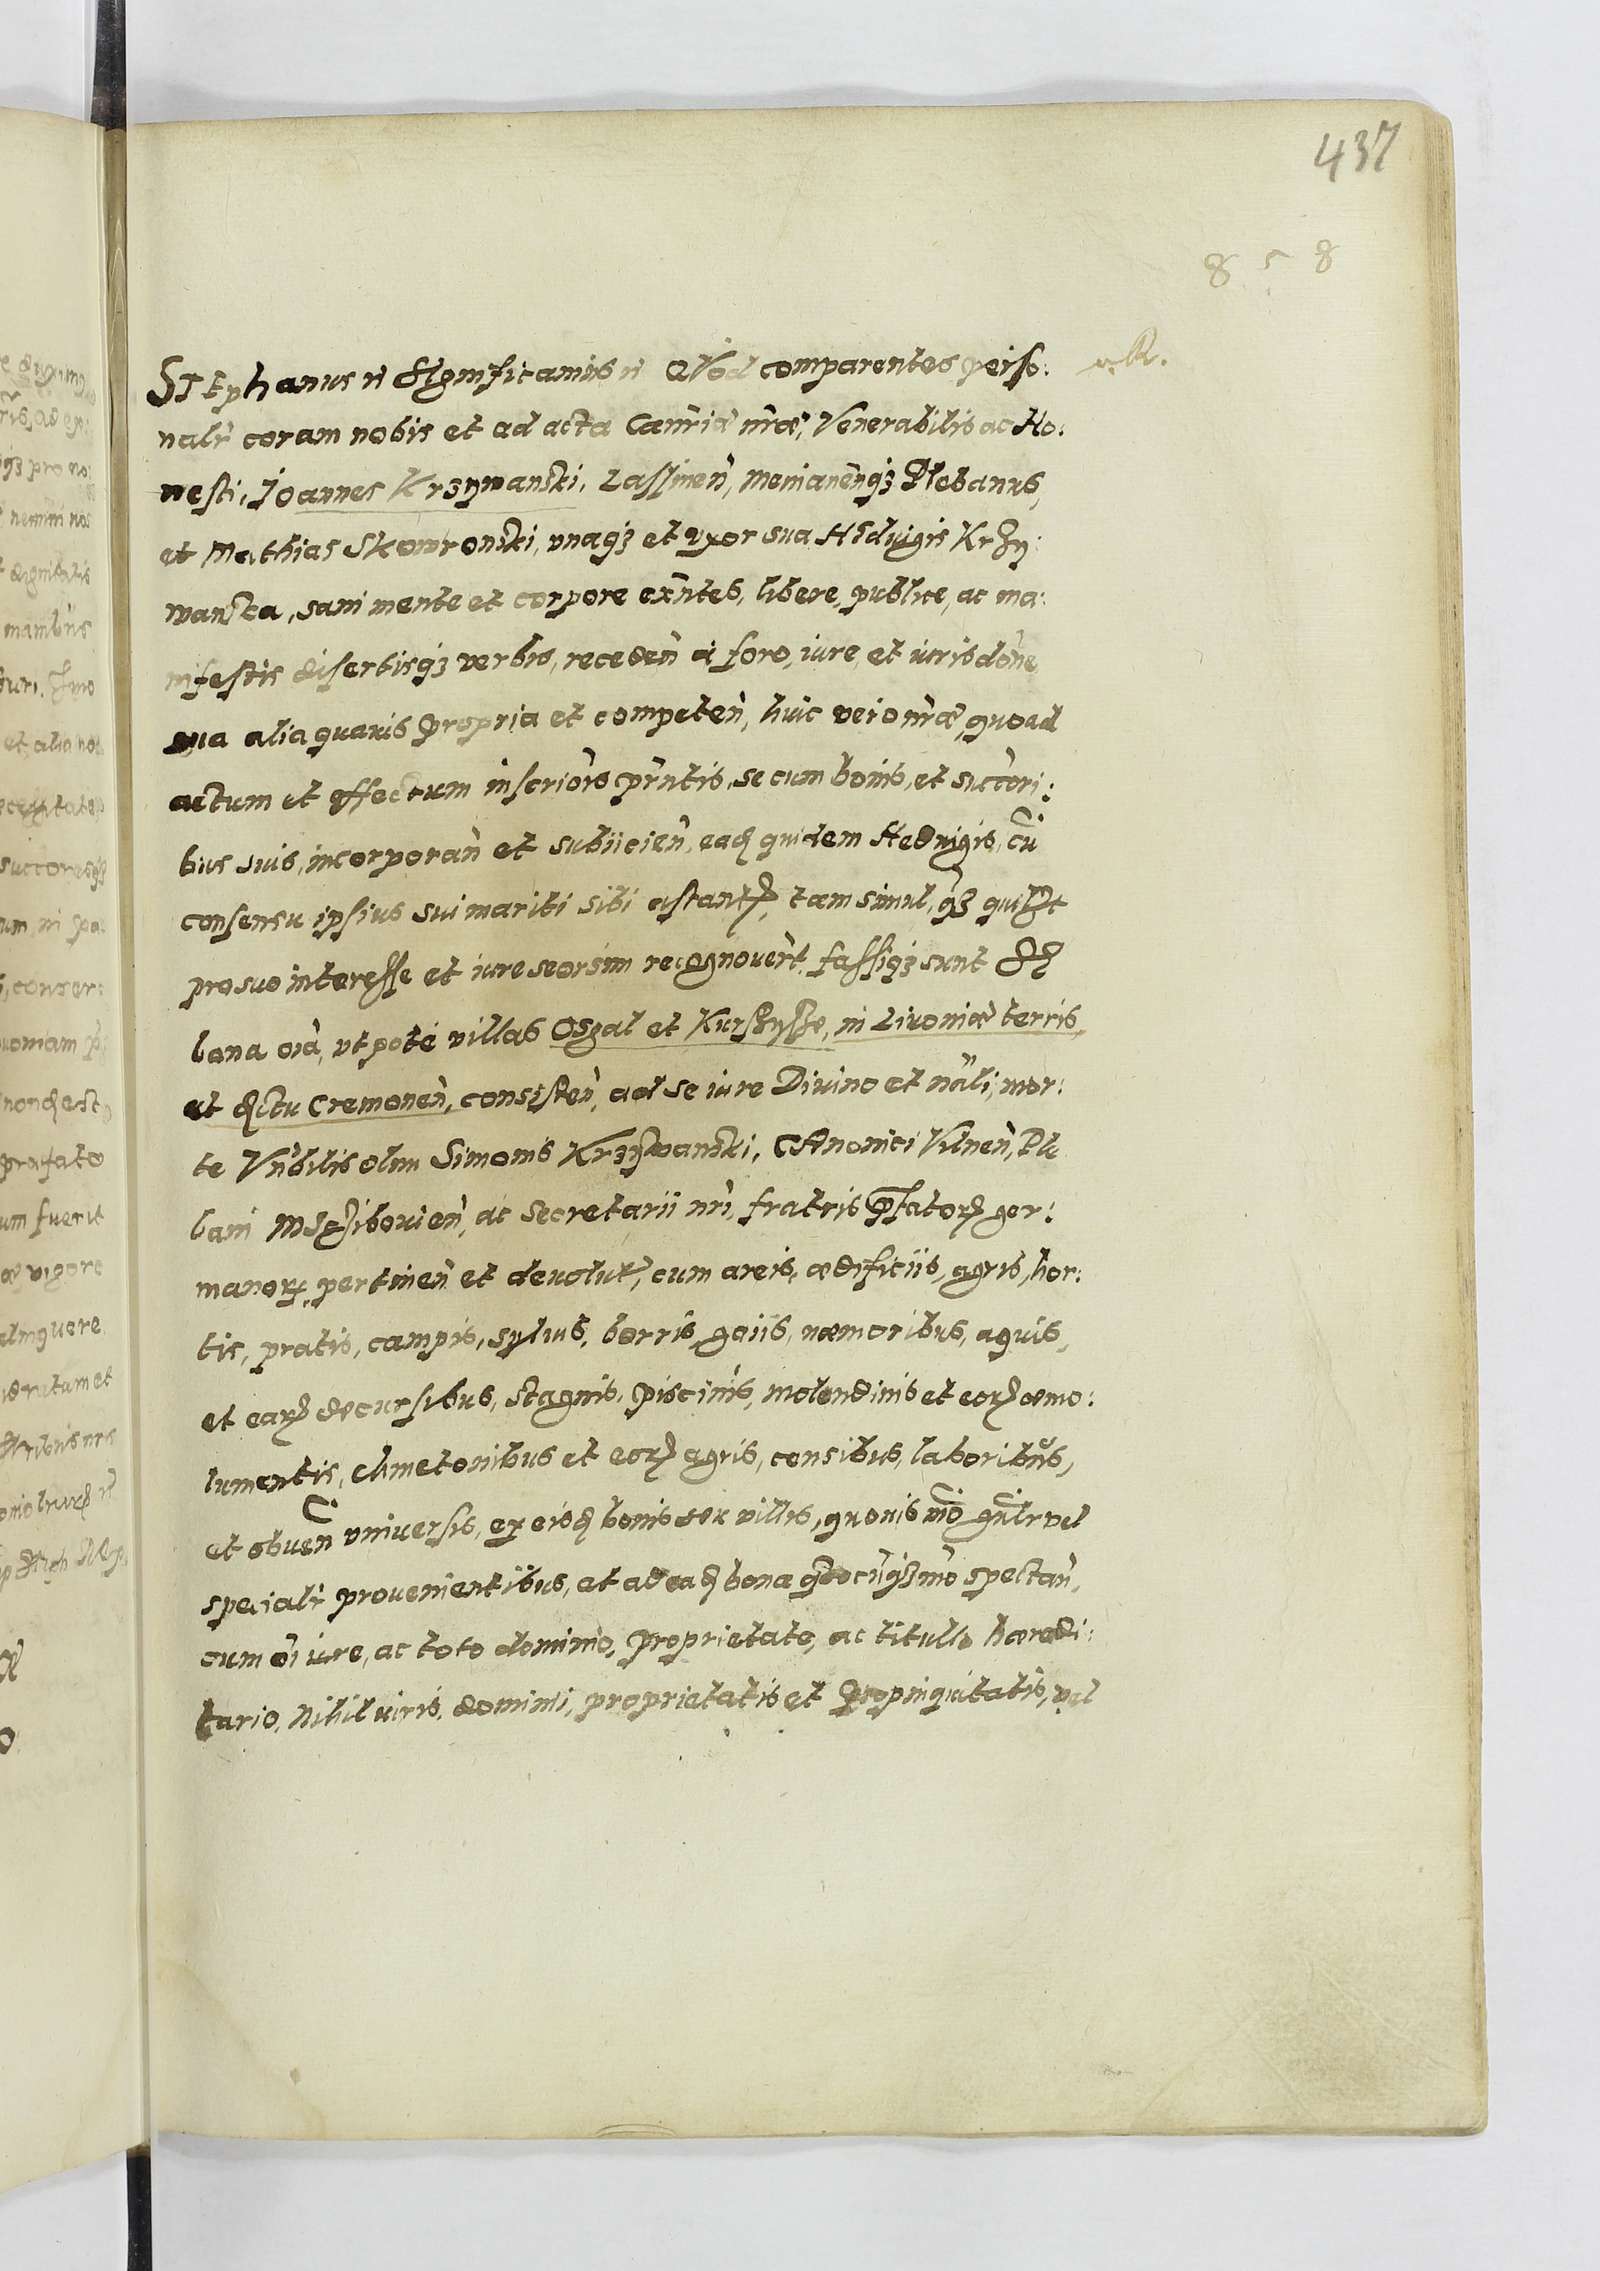 437
8 5 8
STEphanus ñ SIgnificamus ñ QVod comparentes perso:
nalr̃ coram nobis et ad acta Canr̃iæ nr̃æ, Venerabilis ac Ho:
nesti, Joannes Krzywanski, Lassinen̄, Menianēnqз Plebanus,
et Mathias Skowronski, vnaqз et vxor sua Hedvigis Krzy:
wanska, sani mente et corpore exñtes, libere, publice, ac ma:
nifestis disertisqз verbis, receden̄ à foro, iure, et iurisdõne
sua alia quauis propria et competen̄, huic vero nr̃æ, quoad
actum et effectum inscriõis pr̃ntis, se cum bonis, et succori:
bus suis, incorporan̄ et subiicien̄, eadꝫ quidem Hedvigis, cũ
consensu ipsius sui mariti sibi astantꝭ, tam simul, qз quilꝫt
pro suo interesse et iure seorsim recognouer̃t, fassiqз sunt
bona oĩa, vt pote villas Oszal et Kurszyssze, in Liuoniæ terris,
et dꝭictu Cremonen̄, consisten̄, ad se iure Diuino et nãli, mor:
te Vñbilis olim Simonis Krzywanski, CAnonici Vilnen̄, Ple
bani Mscibouien̄, ac Secretarii nr̃i, fratris p̃fatorꝝ ger:
manorꝝ, pertinen̄ et deuolutꝭ, cum areis, ædificiis, agris, hor:
tis, pratis, campis, syluis, borris, gaiis, næmoribus, aquis,
et earꝝ decursibus, stagnis, piscinis, molendinis et eorꝝ æmo:
lumentis, chmetonibus et eorꝝ agris, censibus, laboribus,
et obuen̄ vniuersis, ex eisdꝫ bonis seu villis, quouis mõ gñlr vel
specialr̃ prouenientibus, et ad eadꝫ bona qũocũqз mõ spectan̄,
cum õi iure, ac toto dominio, proprietate, ac titullo hæredi:
tario, nihil iuris, dominii, proprietatis et propinquitatis, vel